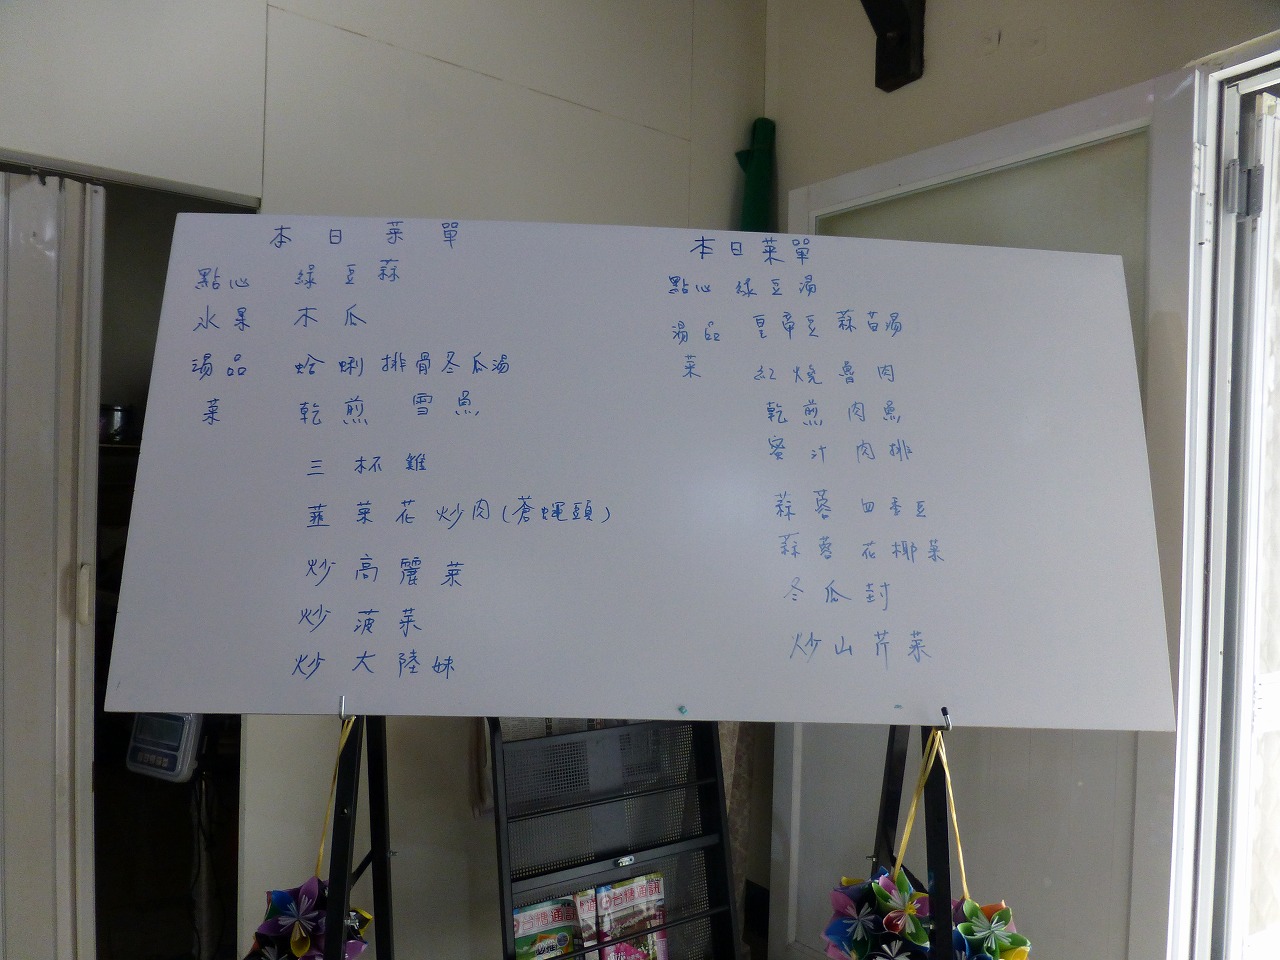 本日菜單
點心 綠豆蒜
水果 木瓜
湯品 蛤蜊排骨冬瓜湯
菜 乾煎 雪魚
三杯雞
韮菜花炒肉(蒼蠅頭)
炒高麗菜
炒菠菜
炒大陸妹
本日菜單
點心 綠豆湯
湯品 皇帝豆蒜苗湯
菜 紅燒魯肉
乾煎肉魚
蜜汁肉排
蒜蓉四季豆
蒜蓉花椰菜
冬瓜封
炒山芹菜
台糖通訊
台糖通訊